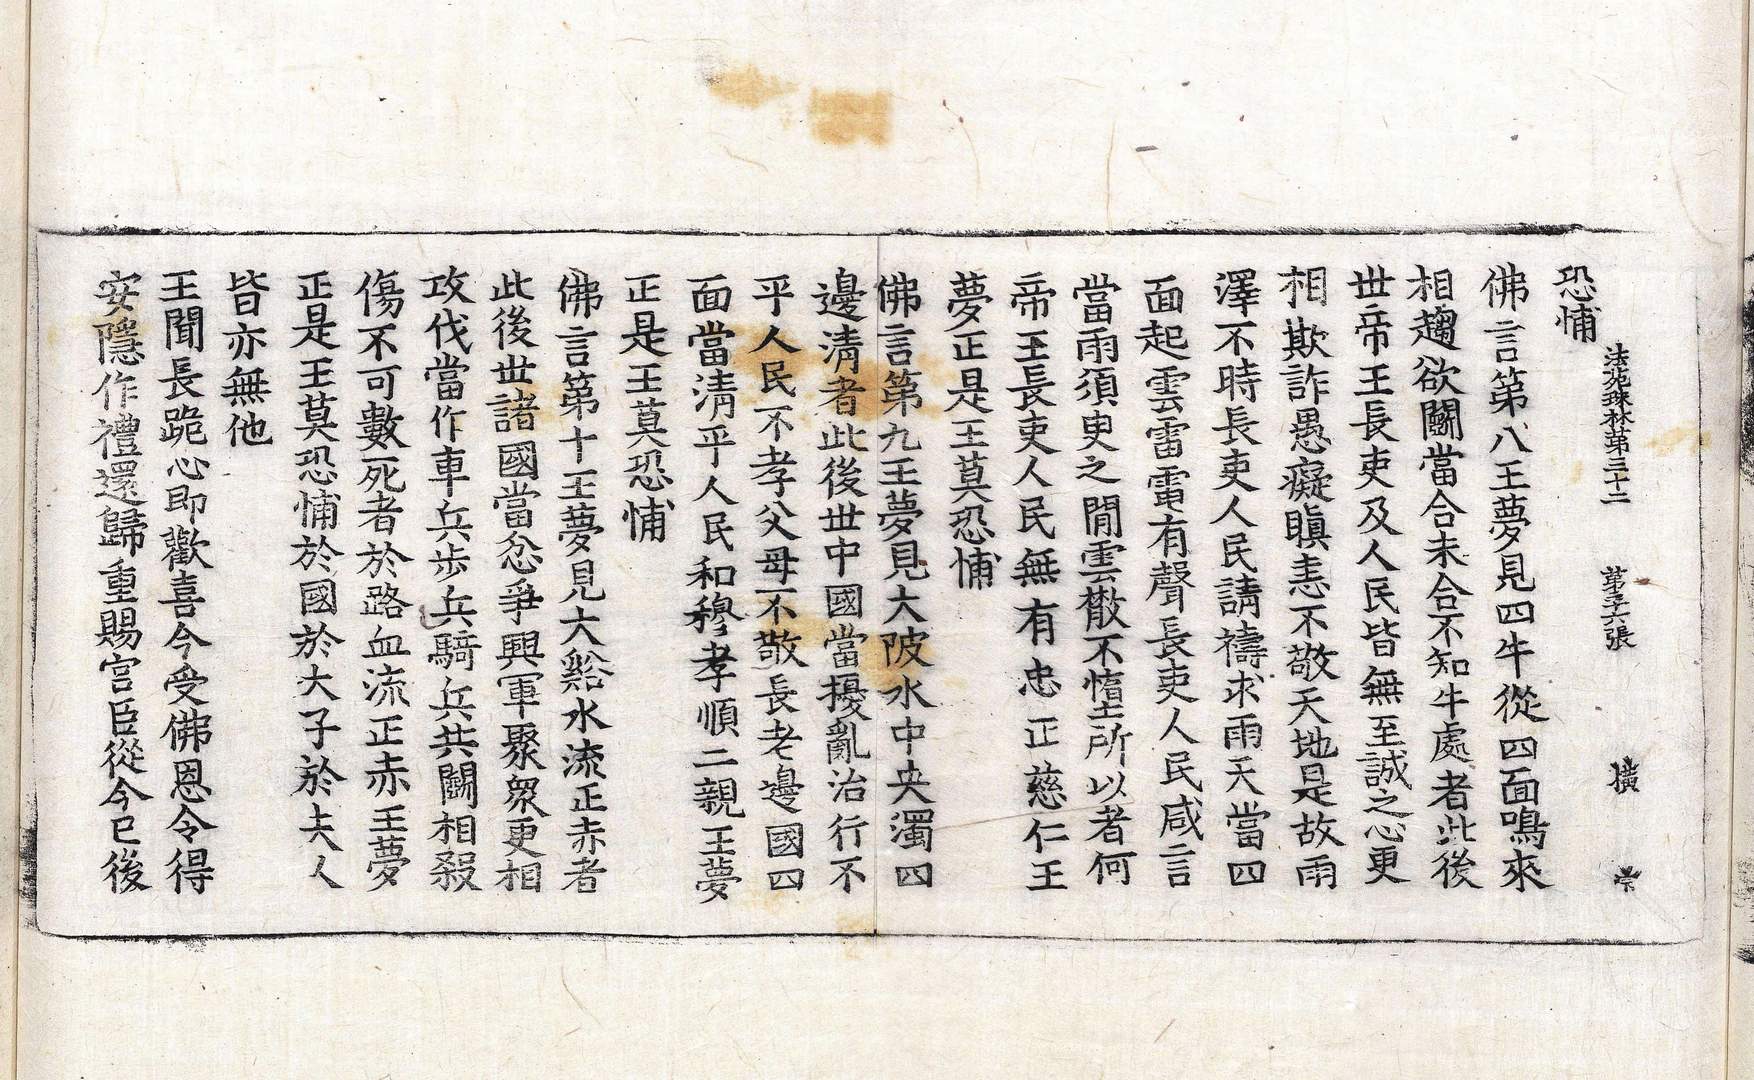 恐悑
法苑珠林第三十二　第三六張　橫
佛言第八王夢見四牛從四面鳴來
相趨欲鬭當合未合不知牛處者此後
世帝王長吏及人民皆無至誠之心更
相欺詐愚癡瞋恚不敬天地是故雨
澤不時長吏人民請禱求雨天當四
面起雲雷電有聲長吏人民咸言
當雨須臾之間雲散不墮所以者何
帝王長吏人民無有忠正慈仁王
夢正是王莫恐悑
佛言第九王夢見大陂水中央濁四
邊清者此後世中國當擾亂治行不
平人民不孝父母不敬長老邊國四
面當清平人民和穆孝順二親王夢
正是王莫恐悑
佛言第十王夢見大谿水流正赤者
此後世諸國當忿爭興軍聚衆更相
攻伐當作車兵步兵騎兵共鬭相殺
傷不可數死者於路血流正赤王夢
正是王莫恐悑於國於大子於夫人
皆亦無他
王聞長跪心即歡喜今受佛恩令得
安隱作禮還歸重賜宫臣從今已後